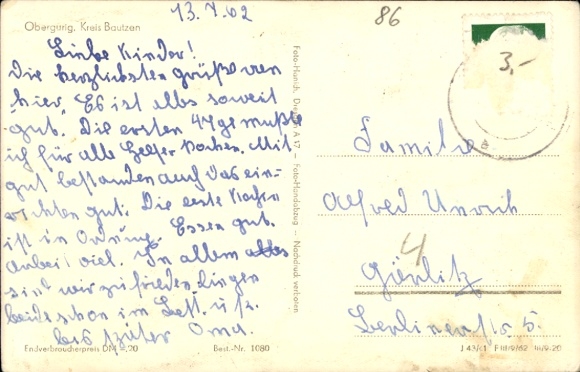 13.7.62
86
Obergurig, Kreis Bautzen
3,-
Liebe Kinder!
Die herzlichsten grüße von
hier. Es ist alles soweit
gut. Die ersten 4 Tage mußte
ich für alle Helfer Kochen. Mit
gut bestanden auch das ein-
wichten gut. Die erste
ist in Ordnung. Essen gut.
Arbeit viel. In allem
sind wir zufrieden. Liegen
beide schon im Bett. u.
bis später Oma.
Familie
Alfred Unrich
4
Görlitz
Berlinerstr. 5.
Foto-Hanich, A 17 – Foto-Handabzug – Nachdruck verboten
Endverbraucherpreis DM -,20 Best.-Nr. 1080
J 43/61 F III/9/62 III/9-20